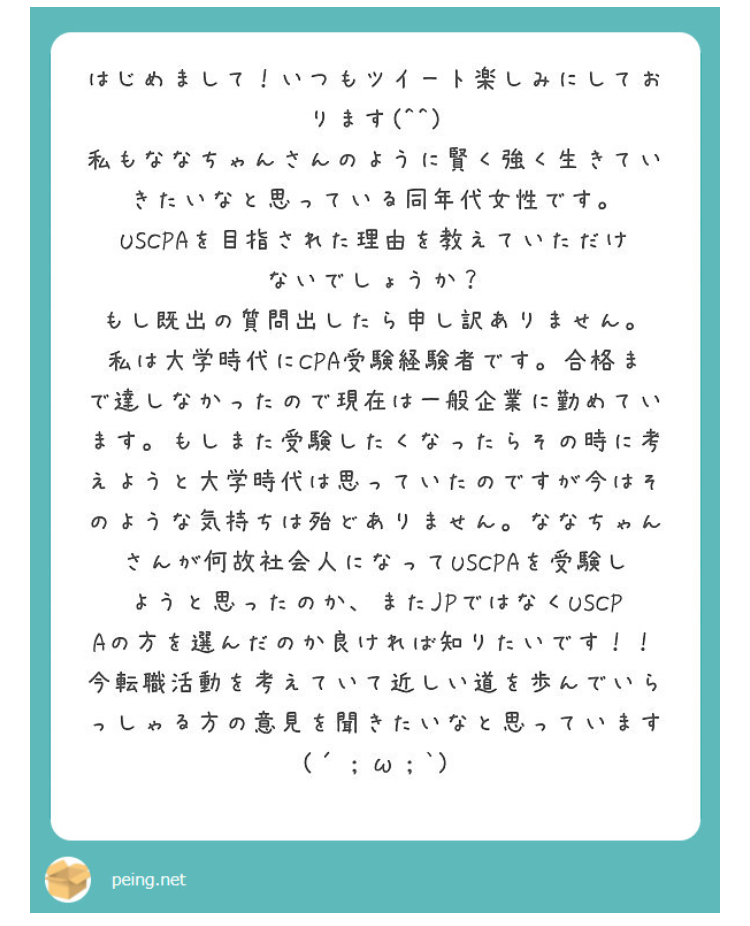 はじめまして！いつもツイート楽しみにしてお
ります(^^)
私もななちゃんさんのように賢く強く生きてい
きたいなと思っている同年代女性です。
USCPAを目指された理由を教えていただけ
ないでしょうか？
もし既出の質問出したら申し訳ありません。
私は大学時代にCPA受験経験者です。合格ま
で達しなかったので現在は一般企業に勤めてい
ます。もしまた受験したくなったらその時に考
えようと大学時代は思っていたのですが今はそ
のような気持ちは殆どありません。ななちゃん
さんが何故社会人になってUSCPAを受験し
ようと思ったのか、またJPではなくUSCP
Aの方を選んだのか良ければ知りたいです！！
今転職活動を考えていて近しい道を歩んでいら
っしゃる方の意見を聞きたいなと思っています
(´；ω；`)
peing.net